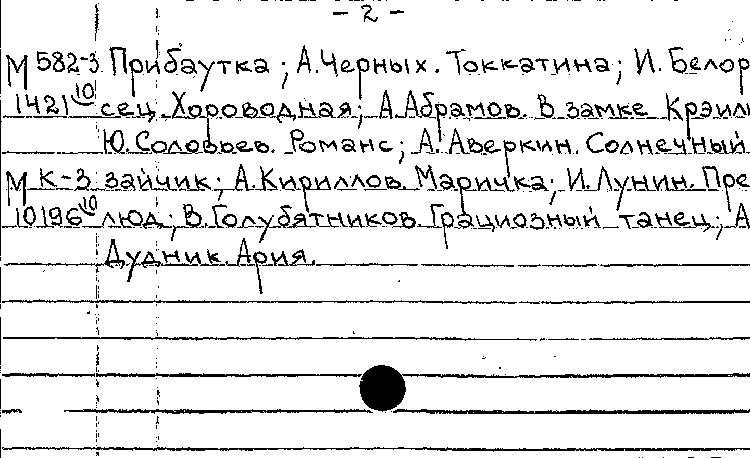 - 2 -
М 582-3 Прибаутка; А.Черных. Токкатина; И. Белор
1421 10 сец. Хороводная; А.Абрамов. В замке Крэил
Ю.Соловьев. Романс; А. Аверкин. Солнечный
М К-3 зайчик; А.Кириллов. Маричка; И.Лунин. Пре
10196 10 люд; В.Голубятников. Грациозный танец; А
Дудник. Ария.